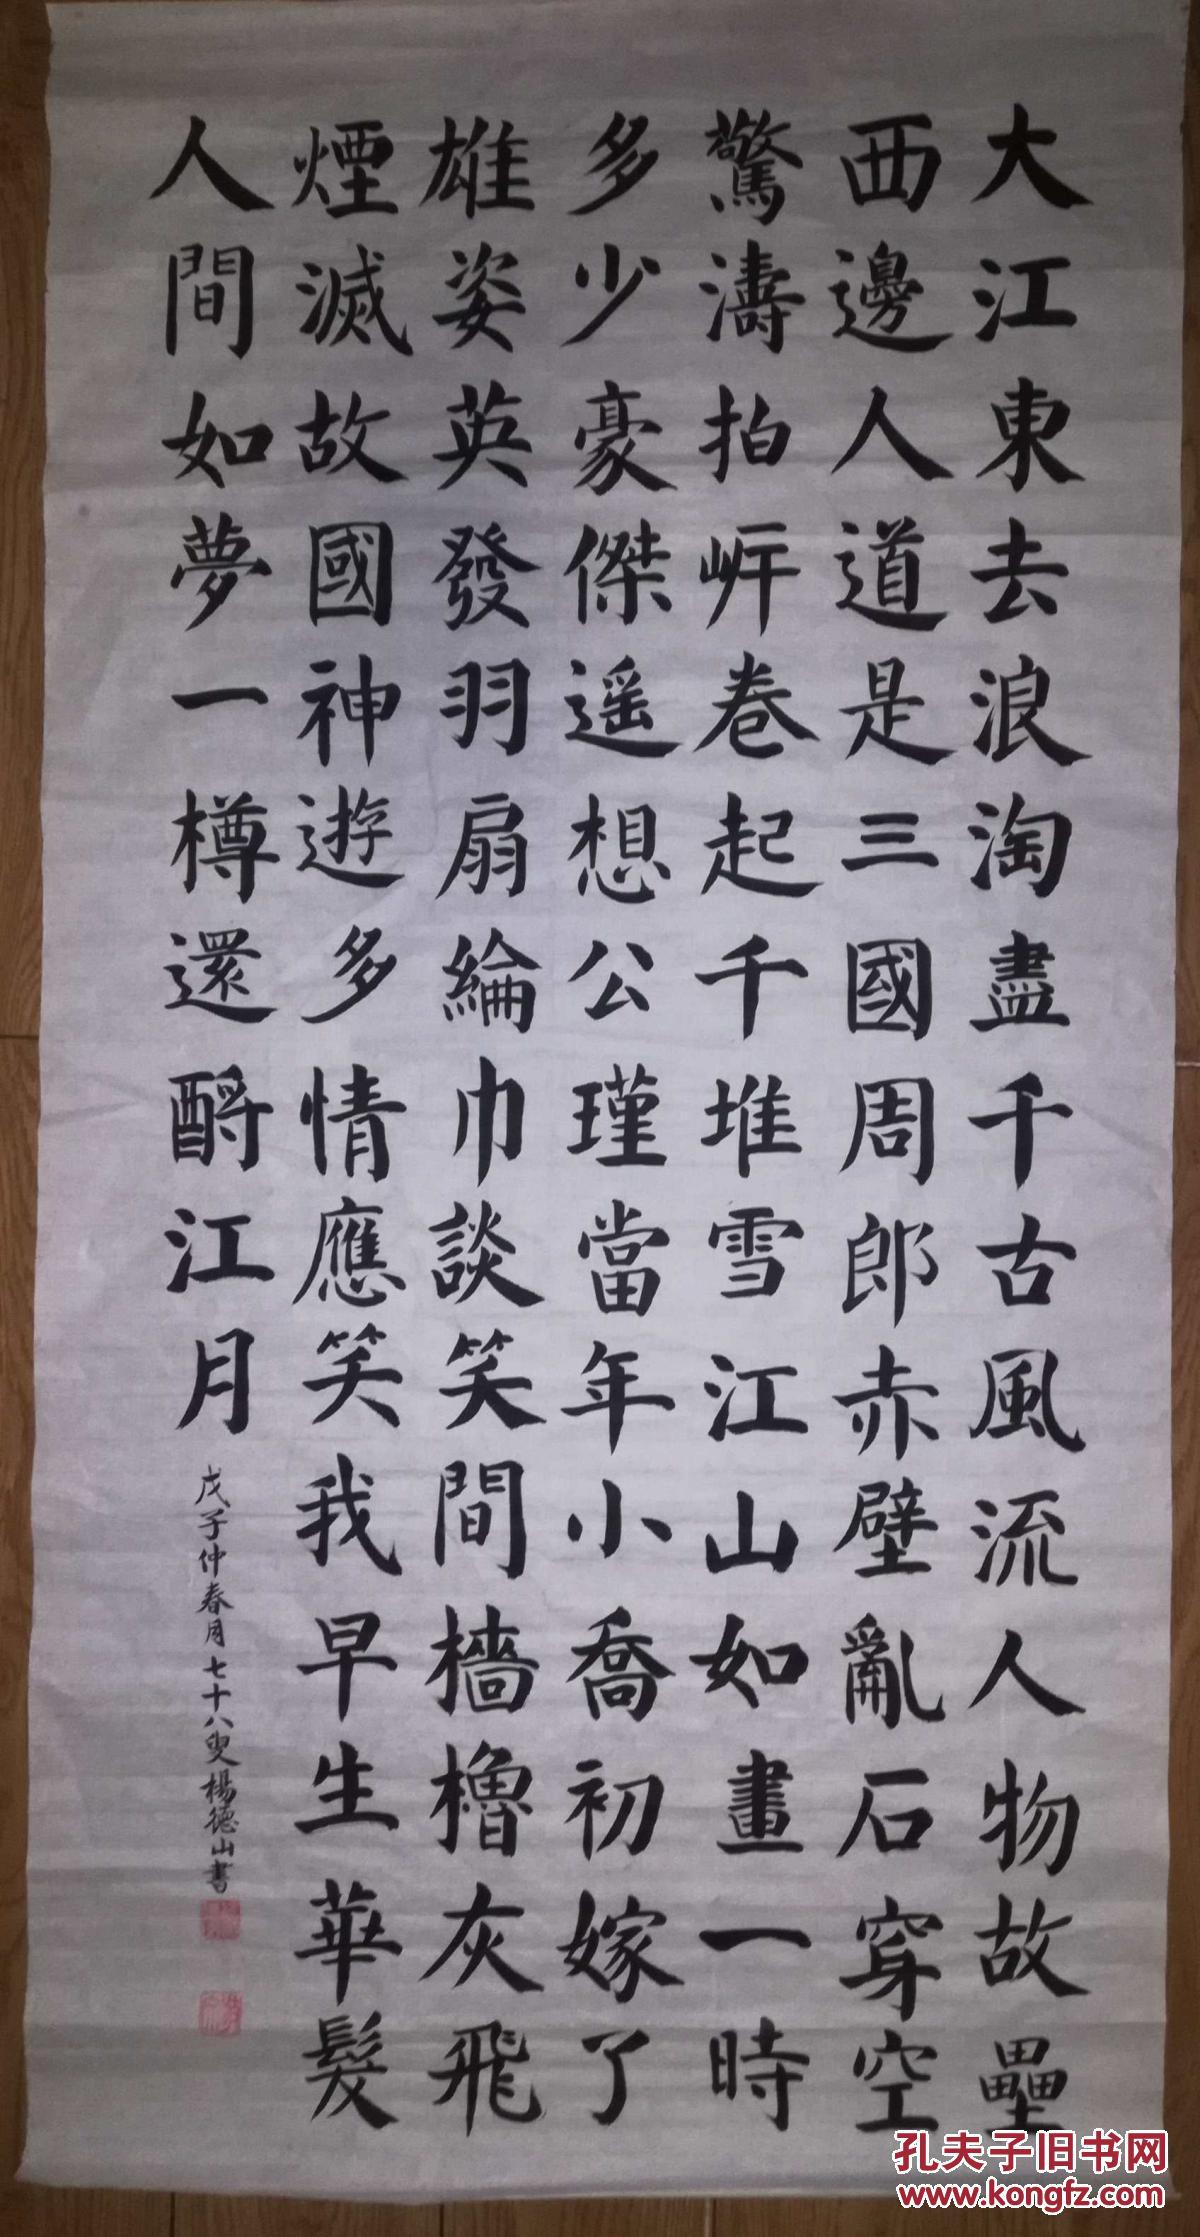 大江東去浪淘盡千古風流人物故壘
西邊人道是三國周郎赤壁亂石穿空
驚濤拍岍卷起千堆雪江山如畫一時
多少豪傑遥想公瑾當年小喬初嫁了
雄姿英發羽扇綸巾談笑間檣櫓灰飛
煙滅故國神遊多情應笑我早生華髮
人間如夢一樽還酹江月
戊子仲春月七十八叟楊德山書
孔夫子旧书网
www.kongfz.com